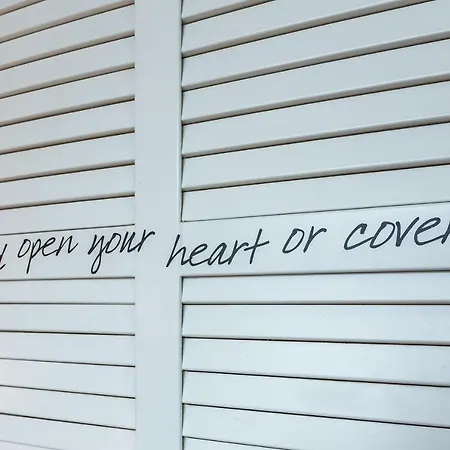 open your heart or cover